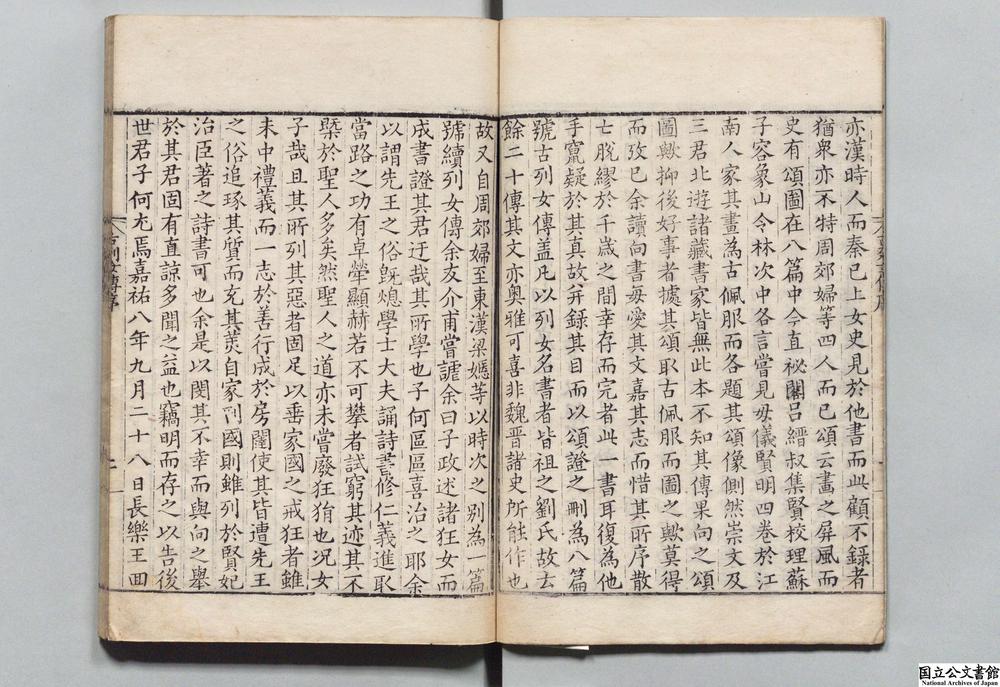 亦漢時人而秦已上女史見於他書而此顧不録者
猶衆亦不特周郊婦等四人而已頌云畫之屏風而
史有頌圖在八篇中今直祕閣吕縉叔集賢校理蘇
子容象山令林次中各言嘗見母儀賢明四卷於江
南人家其畫為古佩服而各題其頌像側然崇文及
三君北遊諸藏書家皆無此本不知其傳果向之頌
圖歟抑後好事者據其頌取古佩服而圖之歟莫得
而攷已余讀向書每愛其文嘉其志而惜其所序散
亡脫繆於千歲之間幸存而完者此一書耳復為他
手竄疑於其真故并録其目而以頌證之刪為八篇
號古列女傳盖凡以列女名書者皆祖之劉氏故云
餘二十傳其文亦奥雅可喜非魏晋諸史所能作也
故又自周郊婦至東漢梁嫕等以時次之别為一篇
號續列女傳余友介甫嘗謔余曰子政述諸狂女而
成書證其君迂哉其所學也子何區區喜治之耶余
以謂先王之俗既熄學士大夫誦詩書修仁義進取
當路之功有卓犖顯赫若不可攀者試窮其迹其不
槩於聖人多矣然聖人之道亦未嘗廢狂狷也况女
子哉且其所列其惡者固足以垂家國之戒狂者雖
未中禮義而一志於善行成於房闥使其皆遭先王
之俗追琢其質而充其羙自家刑國則雖列於賢妃
治臣著之詩書可也余是以閔其不幸而與向之舉
於其君固有直諒多聞之益也竊明而存之以告後
世君子何尤焉嘉祐八年九月二十八日長樂王回
国立公文書館
National Archives of Japan